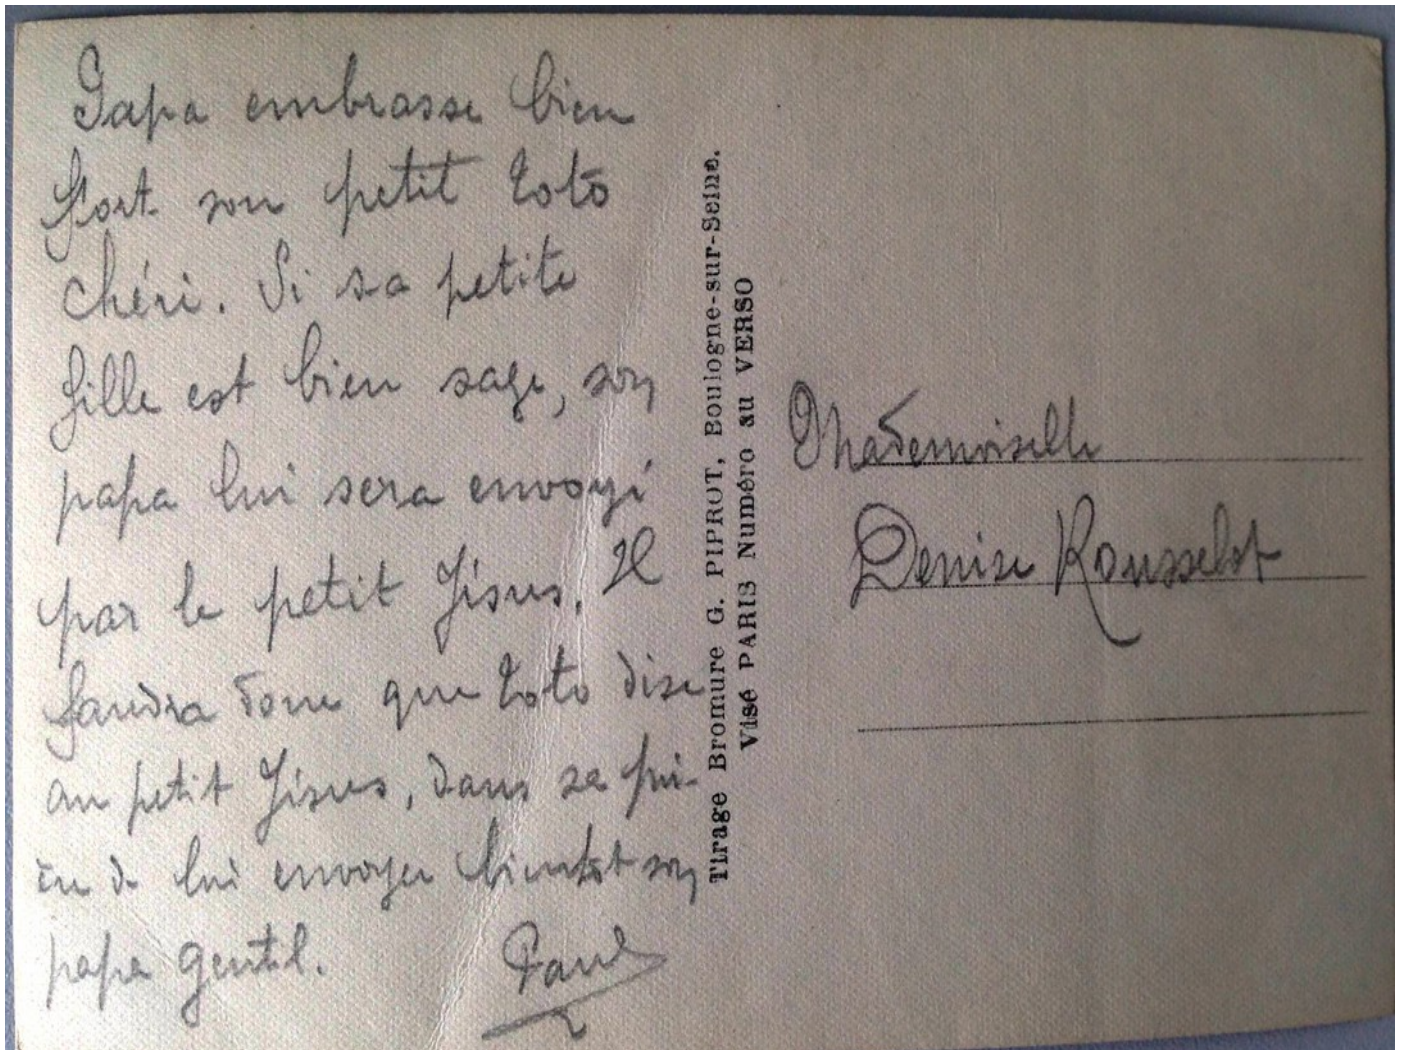 Papa embrasse bien
fort son petit Toto
chéri. Si sa petite
fille est bien sage, son
papa lui sera envoyé
par le petit Jésus. Il
faudra donc que Toto dise
au petit Jésus, dans sa pri-
ère de lui envoyer bientôt son
papa gentil.
Paul
Tirage Bromure G. PIPROT, Boulogne-sur-Seine.
Visé PARIS Numéro au VERSO
Mademoiselle
Denise Rousselot